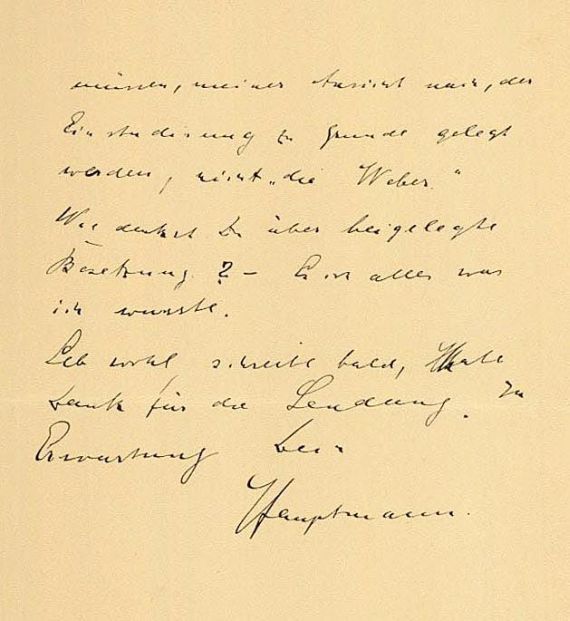 müssen, meiner Ansicht nach, der
Einstudirung zu Grunde gelegt
werden, nicht „die Weber."
Was denkst Du über beigelegte
Besetzung? – Es ist alles was
ich wusste.
Leb wohl, schreibe bald, Habe
Dank für die Sendung. In
Erwartung Dein
Hauptmann.